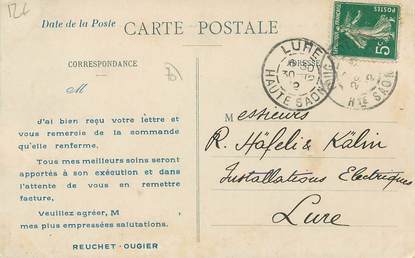 126
Date de la Poste
CARTE POSTALE
POSTES
5c
CORRESPONDANCE
ADRESSE
LURE
HAUTE SAONE
Hte SAON
M
J'ai bien reçu votre lettre et
vous remercie de la commande
qu'elle renferme.
Tous mes meilleurs soins seront
apportés à son exécution et dans
l'attente de vous en remettre
facture,
Veuillez agréer, M
mes plus empressées salutations.
REUCHET-OUGIER
Messieurs
R. Häfeli & Kälin
Installations Electriques
Lure